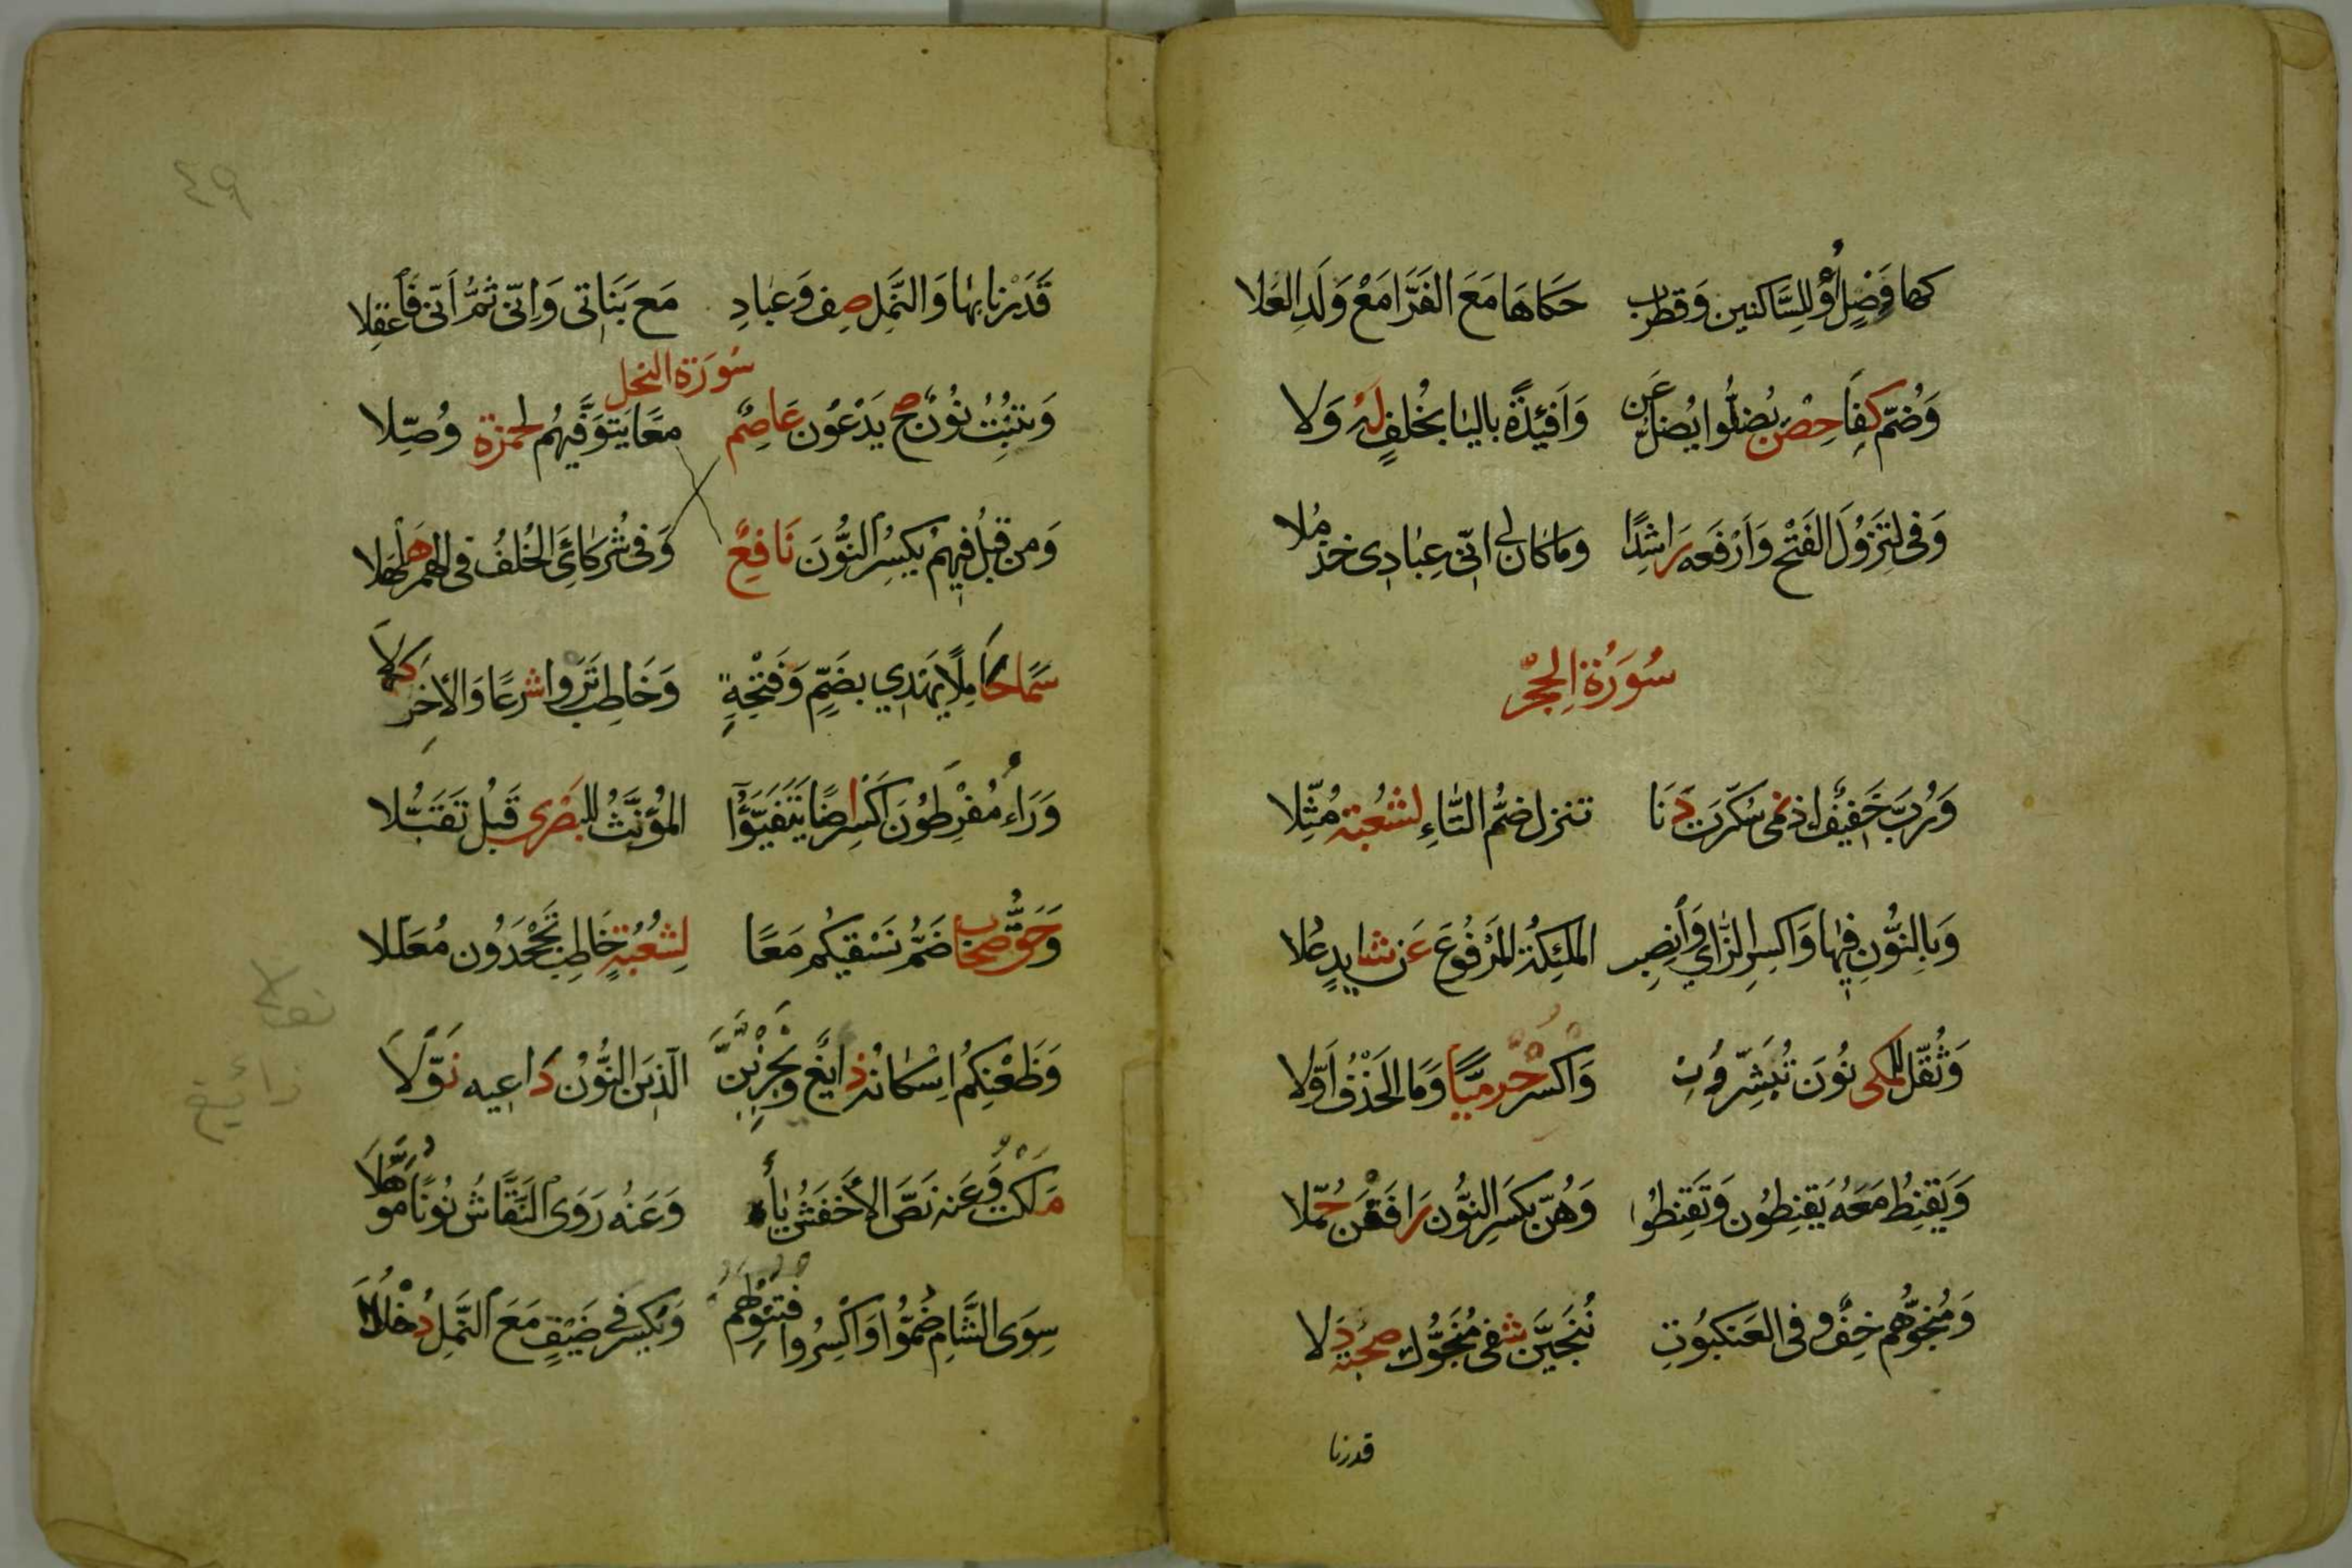 كها وَصْلٍ أَوْ لِلسَّاكنين وَقطرب حَكاهَا مَعَ الفَرَّا مَعْ وَلَدِ العَلا
وَضُمّ كِفَا حِصْنٍ يُضلُّوا يُضلَّ عَن وَأَفئِدَةً باليا بخُلفٍ لَهُ وَلا
وَفى لِتَزُوْلَ الفَتْح وَارْفَعه رَاشدًا وَما كان لى انّى عِبَادِى خذ مُلا
سُوَرَةُ الحِجْر
وَرُبَّ خَفيفٌ اذ نمى سُكّرَت دَنَا تنزل ضمُّ التَّاءِ لشُعْبَة مُثِّلا
وَبِالنُّونِ فِيهَا وَاكسِرِ الزَّاي وَانصِب الملئِكَةُ المَرْفُوعَ عَن شايدٍ عُلا
وَثُقّل للمكى نُوْنَ تُبَشِّرُونِ وَاكسرْ حرْميّاً وَمَا الحَذْفُ اَوَّلا
وَيَقنِطُ مَعَهُ يَقنِطُون وَتَقنِطُوا وَهُنّ بكَسَرِ النُّون رَافَقْنَ حُمّلا
وَمُنجوُّهُم خِفٌّ وفى العَنكَبُوتِ نُنجَيَنَّ شفى مُنجُوْكَ صحبته دَلا
قدرنا
٤٩
قَدَرْنا بِهَا وَالنَّمِل صِف وَعبَادِ مَع بَنَاتى وَانّى ثمَّ اَنّى فَاعقِلا
سُوَرَة النحل
وَيُنبِتُ نُوْنٌ صح يَدْعُون عَاصِمٌ معًا يَتوَفَّيهُم لحمزة وُصِّلا
وَمن قبلُ فيهمْ يكسِرُ النُّوْنَ نَافعٌ وَفى شُرَكائَ الخُلفُ فى الهمز هَلهَلا
سَمَا كَامِلاً يهدِي بضَمٍّ وَفَتْحَةٍ وَخَاطِب تَرَوا شرعًا وَالاخِر كلا
وَرَاءُ مُفْرِطُوْنَ اكسر اضًا يَتَفَيَّؤُا المؤَنَّثُ للبَصْرى قَبلُ تَقَبَّلا
وَحَقُّ صحاب ضَمُّ نَسقيكُم مَعًا لِشُعْبَةَ خَاطِب تَجْحَدُون مُعَلَلا
وَظَعْنِكُم اِسْكانُه ذايعٌ ونجزِيَنَّ الّذِينَ النُّوْنُ دَاعِيه نَوَّلَا
مَلَكْتُ وَعَنه نَصَّ الاَخفَشُ ياءه وَعَنهُ رَوَى النَّقَّاشُ نُونًا مُوَهَّلَا
سِوَى الشَّامِ ضُمُّوا وَاكْسِرُوا فُتنُوا لهم وَيُكسَرُ فى ضَيْقٍ مَعَ النَّمِل دُخْلُلا